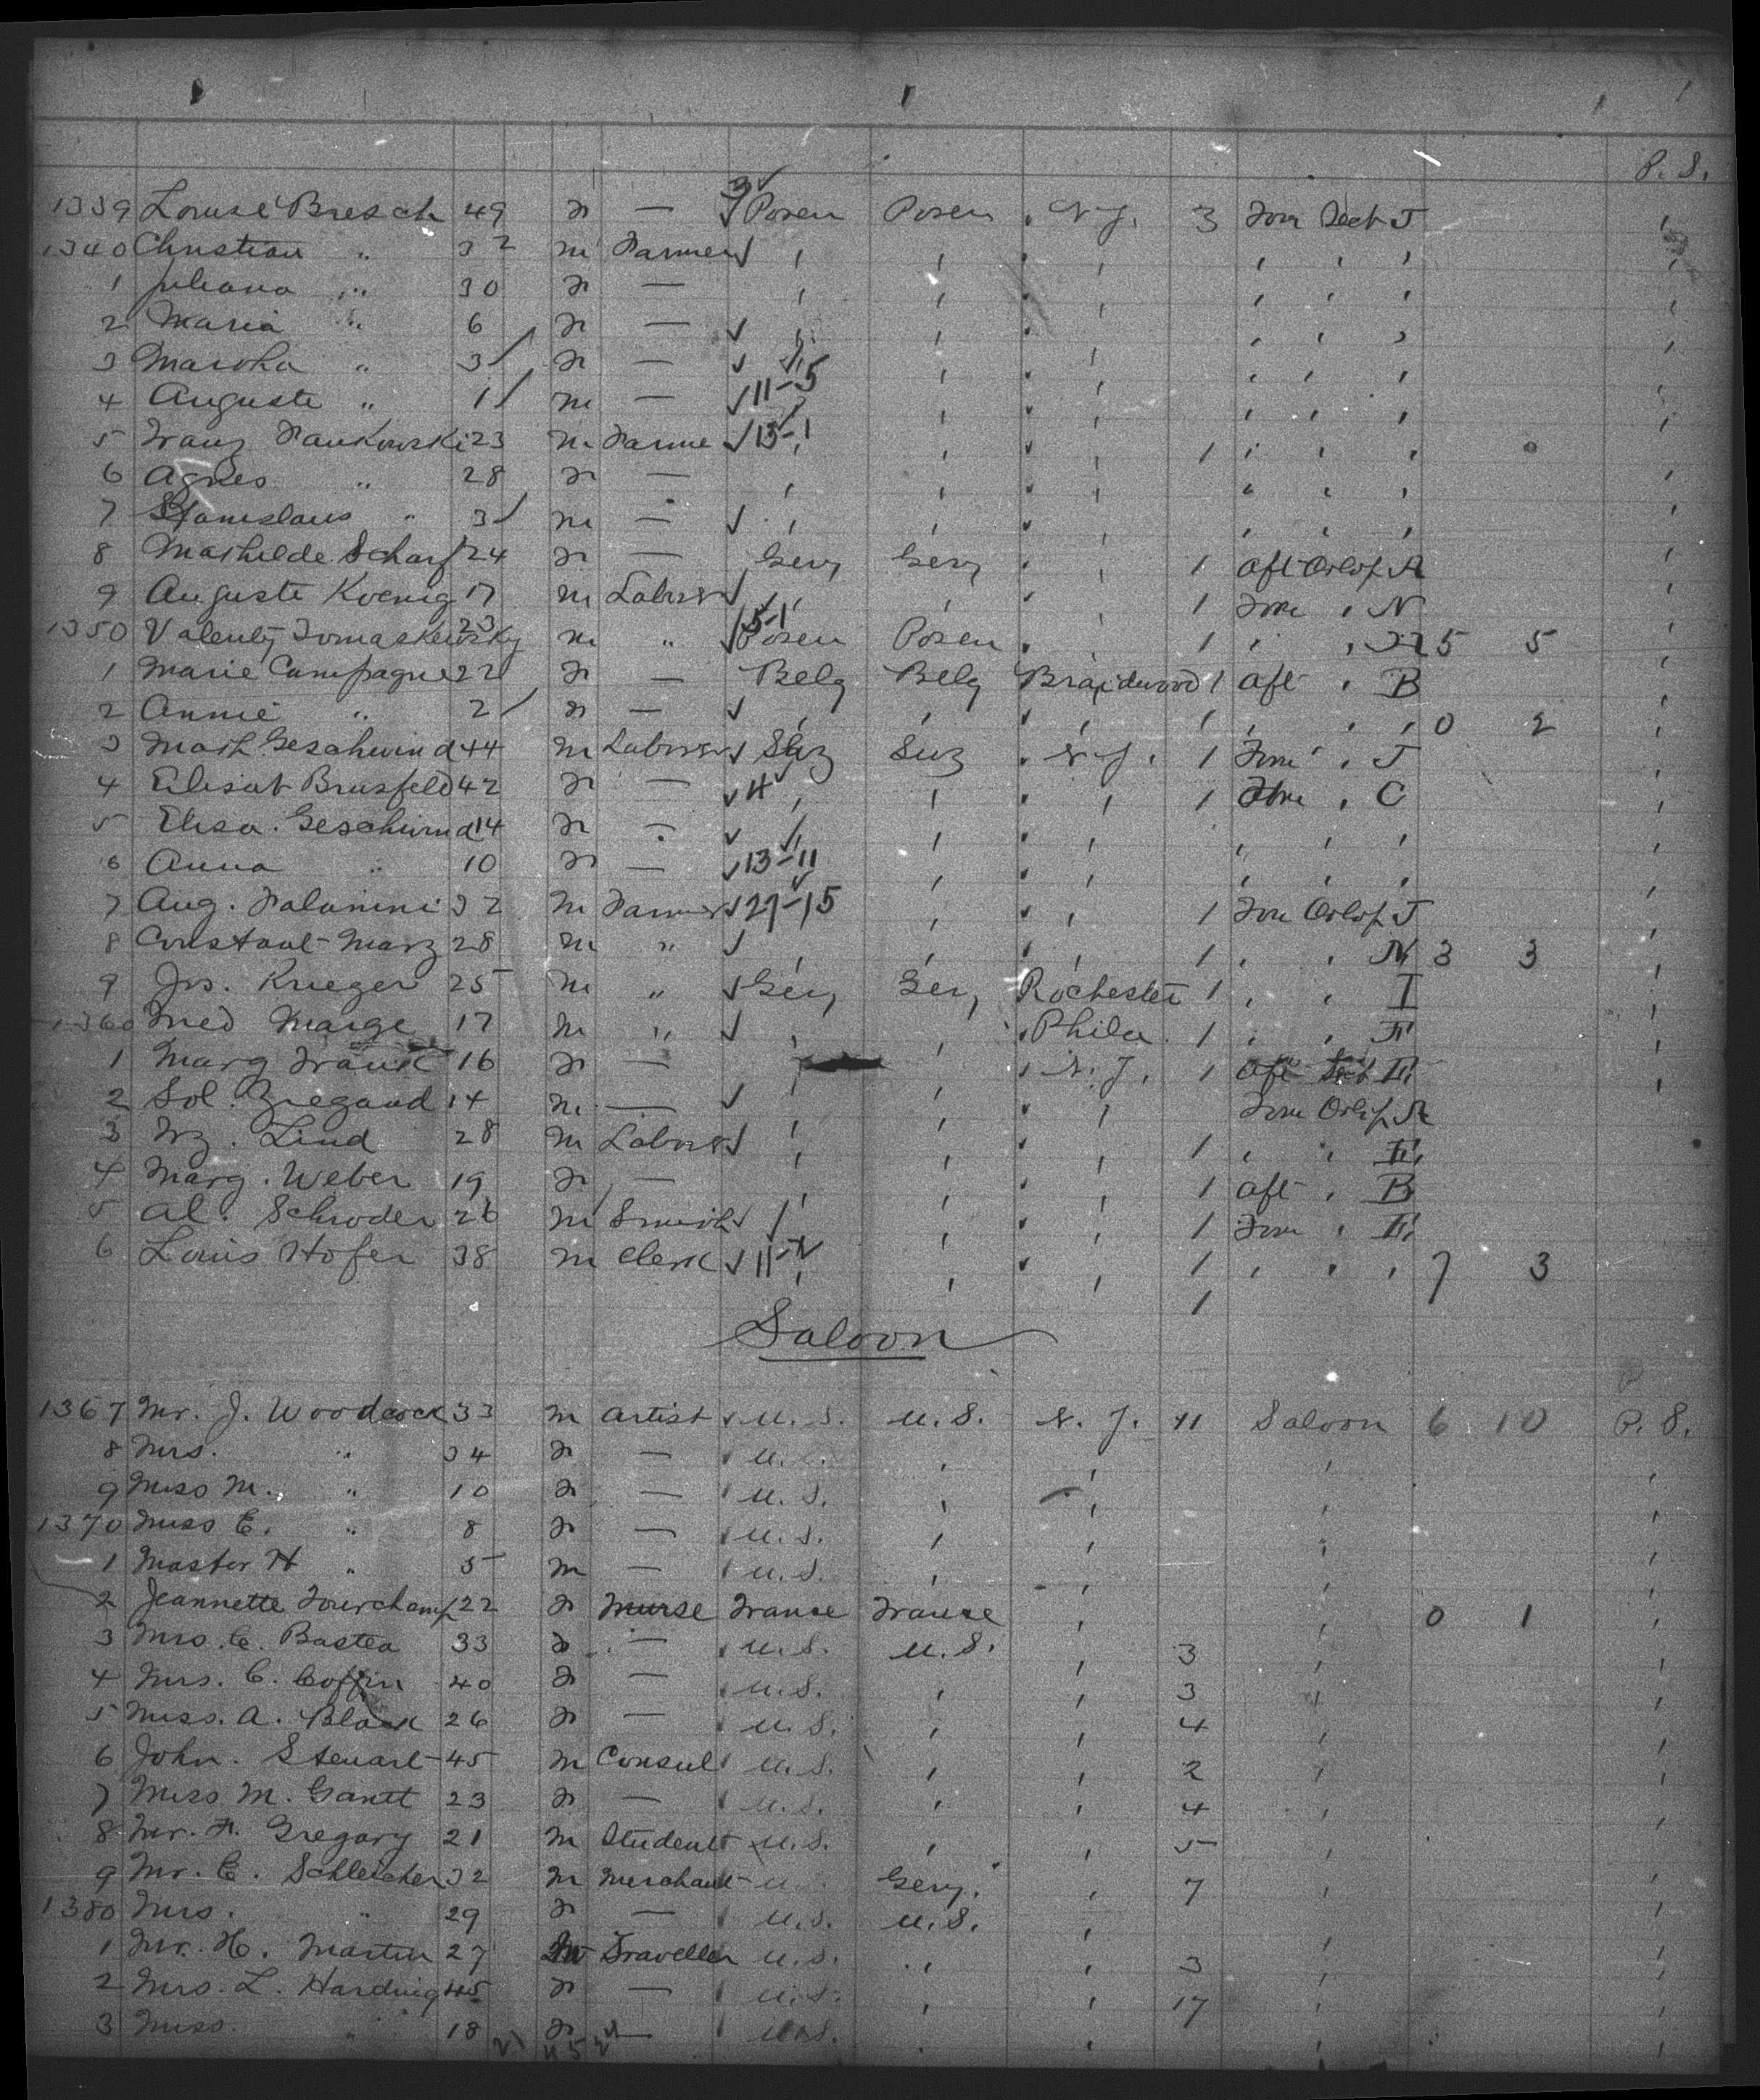 P. S.
1339 Louise Bresch 49 f — Posen Posen N. Y. 3 For Deck J
1340 Christian " 32 m Farmer
1 Juliana " 30 f —
2 Maria " 6 f —
3 " 3 f —
4 Auguste " 1 m — 11-5
5 Franz 23 m Farme 13-1 1
6 Agnes " 28 f —
7 Stanislaus " 3 m —
8 Mathilde Scharf 24 f — Gery Gery 1 Aft Orlop A
9 Auguste Koenig 17 m Laborer 1 For N
1350 Valenty 23 m " 5-1 Posen Posen 1 5 5
1 Marie Campagne 22 f — Belg Belg Braidwood 1 Aft B
2 Annie " 2 f — 1 0 2
3 Math Geschwind 44 m Laborer Suz Suz N. Y. 1 For J
4 Elisab Brusfeld 42 f — 4 1 For C
5 Elisa. Geschwind 14 f —
6 Anna " 10 f — 13-11
7 Aug. 32 m Farmer 27-15 1 For Orlop J
8 Constant Marz 28 m " 1 N 3 3
9 Jos. Krieger 25 m " Gery Gery Rochester 1 I
1360 17 m " Phila 1 F
1 Marg Frank 16 f — N. Y. 1 Aft E
2 Sol. 14 m — For Orlop A
3 Lind 28 m Laborer 1 E
4 Marg. Weber 19 f — 1 Aft B
5 Al. Schroder 26 m Smith 1 For E
6 Louis Hofer 38 m Clerk 11- 1 7 3
1
Saloon
1367 Mr. J. Woodcock 33 m Artist U. S. U. S. N. Y. 11 Saloon 6 10 P. S.
8 Mrs. " 34 f — U. S.
9 Miss M. " 10 f — U. S.
1370 Miss E. " 8 f — U. S.
1 Master H " 5 m — U. S.
2 Jeannette Fourchamp 22 f Nurse France France 0 1
3 Mrs. C. Bastea 33 f — U. S. U. S. 3
4 Mrs. C. Coffin 40 f — U. S. 3
5 Miss. A. Black 26 f — U. S. 4
6 John. Steuart 45 m Consul U. S. 2
7 Miss M. Gantt 23 f — U. S. 4
8 Mr. F. Gregory 21 m Student U. S. 5
9 Mr. E. Schleicher 32 m Merchant Gery. 7
1380 Mrs. " 29 f — U. S. U. S.
1 Mr. H. Martin 27 m Traveller U. S. 3
2 Mrs. L. Harding 45 f — U. S. 17
3 Miss. " 18 f — U. S.